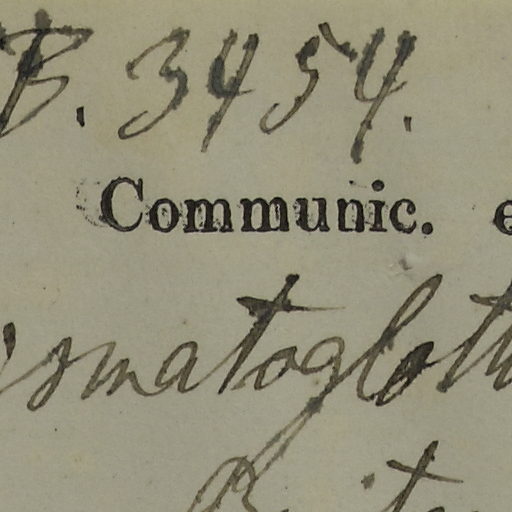 B. 3454.
Communic. e
smatoglott